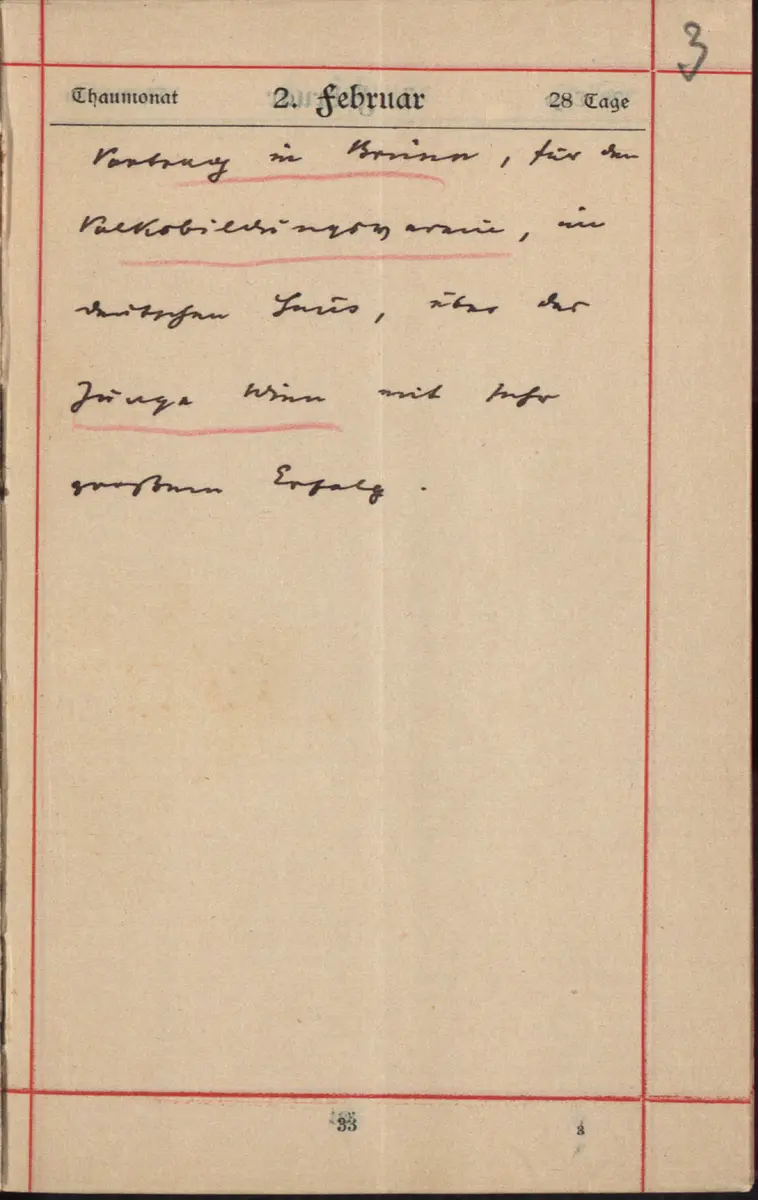 3
Thaumonat 2. Februar 28 Tage
Vortrag in Brünn, für den
Volksbildungsverein, im
deutschen Haus, über das
Junge Wien mit sehr
großem Erfolg.
33
3